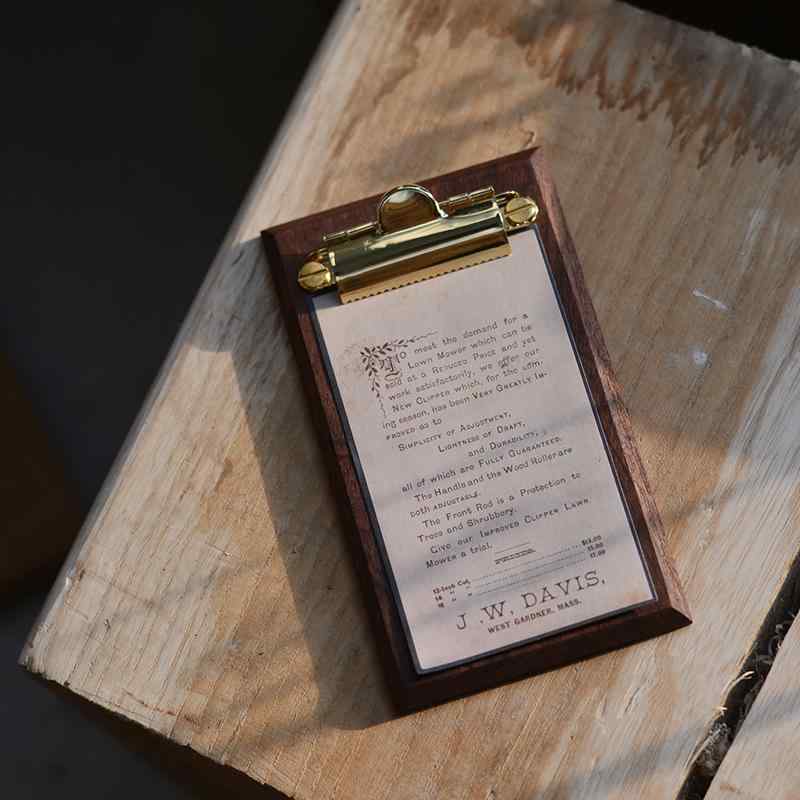 To meet the demand for a
Lawn Mower which can be
sold at a REDUCED PRICE and yet
work satisfactorily, we offer our
NEW CLIPPER which, for the com-
ing season, has been VERY GREATLY IM-
PROVED as to
SIMPLICITY OF ADJUSTMENT,
LIGHTNESS OF DRAFT,
and DURABILITY,
all of which are FULLY GUARANTEED.
The Handle and the Wood Roller are
both ADJUSTABLE.
The Front Rod is a Protection to
Trees and Shrubbery.
Give our IMPROVED CLIPPER LAWN
MOWER a trial.
12-Inch Cut,
14 " "
16 " "
15.00
17.00
J. W. DAVIS,
WEST GARDNER, MASS.